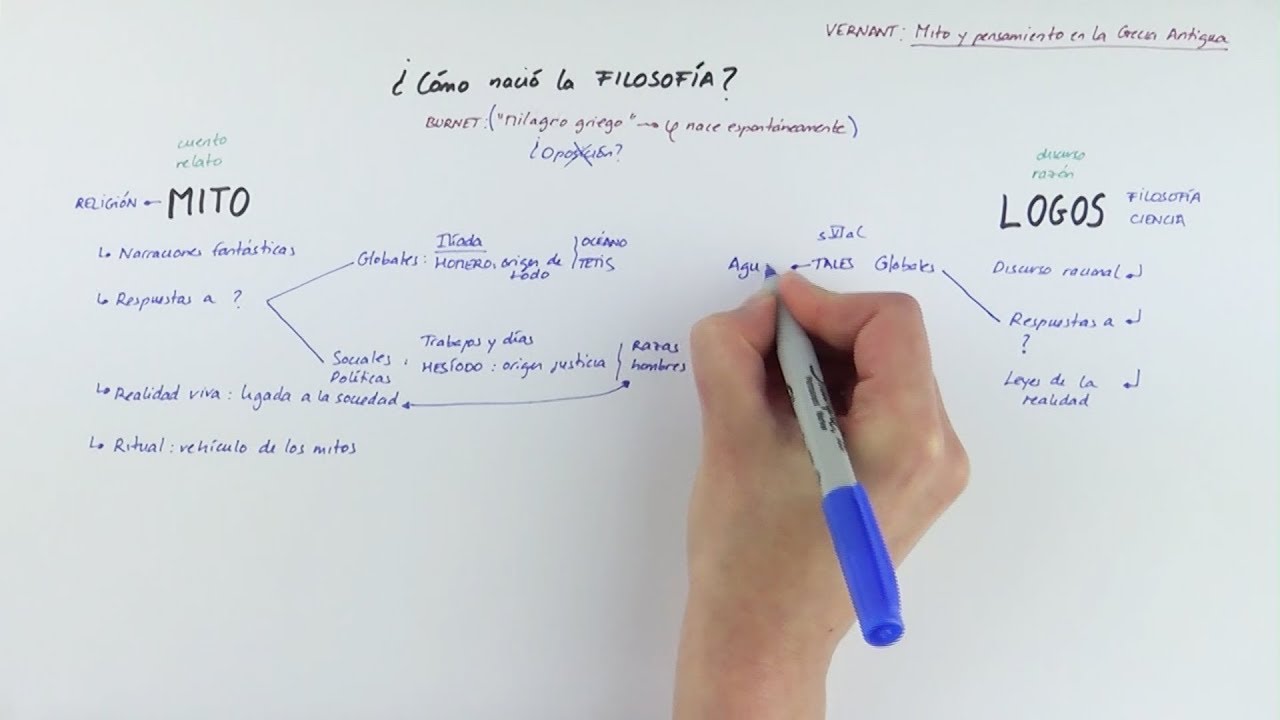 VERNANT: Mito y pensamiento en la Grecia Antigua
¿Cómo nació la FILOSOFÍA?
BURNET: ("Milagro griego" → φ nace espontáneamente)
¿Oposición?
cuento
relato
RELIGIÓN ← MITO
↳ Narraciones fantásticas
↳ Respuestas a ?
Globales: Ilíada
HOMERO, origen de
todo
OCÉANO
TETIS
Sociales,
Políticas
Trabajos y días
HESÍODO: origen justicia
Razas
hombres
↳ Realidad viva: ligada a la sociedad
↳ Ritual: vehículo de los mitos
discurso
razón
LOGOS
FILOSOFÍA
CIENCIA
sVIaC
Agu ← TALES Globales
Discurso racional
Respuestas a
?
Leyes de la
realidad